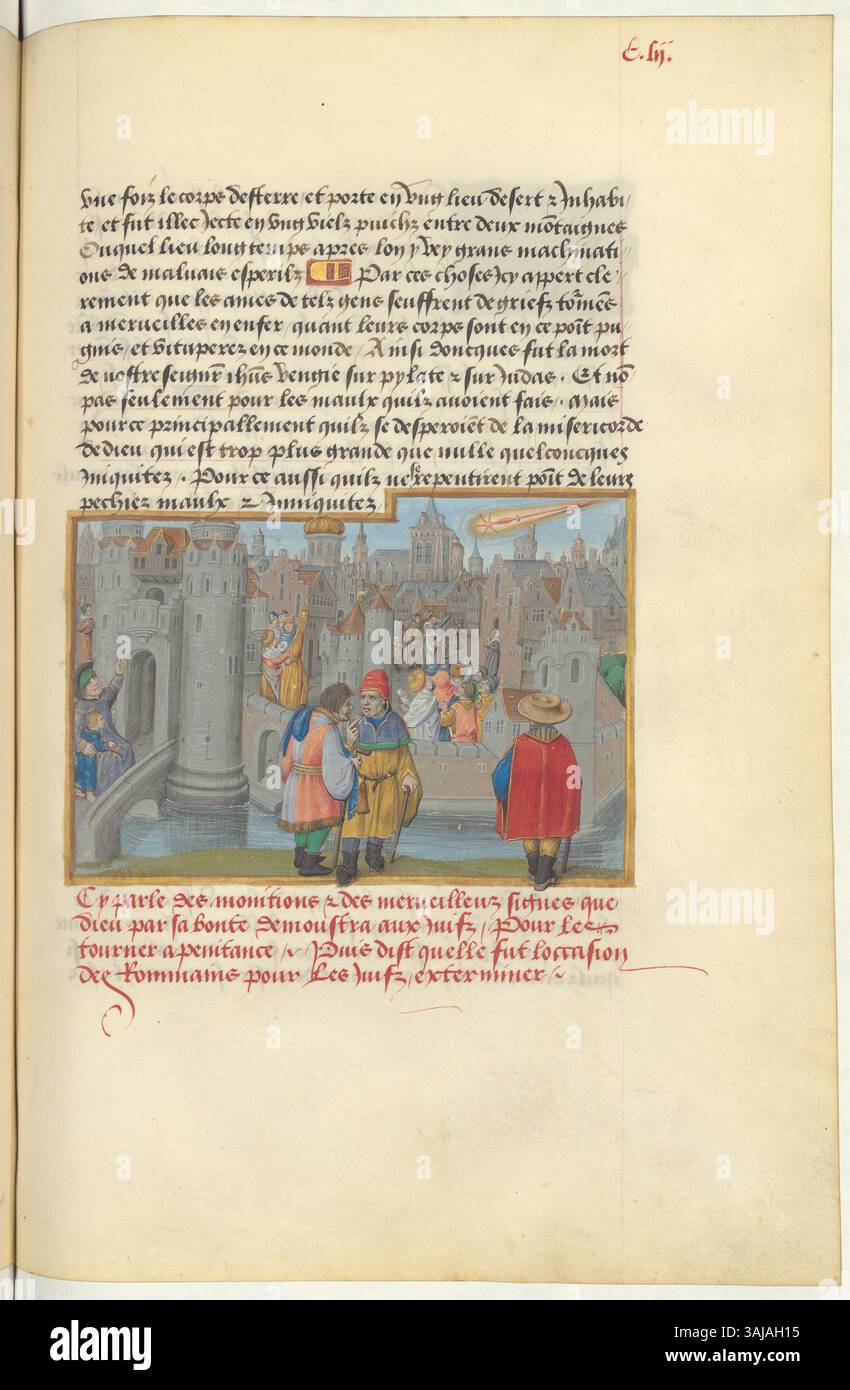 C.lij.
vne foiz le corps desterre / et porte en vng lieu desert ⁊ Inhabi/
te / et fut illec Jecte en vng vielz puichz entre deux mõtaignes
Ouquel lieu long temps apres / lon y vey grans machinati/
ons de maluais esperilz Par ces choses Icy appert cle/
rement que les ames de telz gens seuffrent de griefz tormẽs
a merueilles en enfer / quant leurs corps sont en ce põt pu/
gnis / et vituperez en ce monde / Ainsi doncques fut la mort
de nostre seignr̃ ihũs vengie sur pylate ⁊ sur Iudas . Et nõ
pas seulement pour les maulx quilz auoient fais . Mais
pource principallement quilz se desperoiẽt de la misericorde
de dieu qui est trop plus grande que nulle quelconcques
Iniquitez . Pour ce aussi quilz ne repentirent põt de leurs
pechiez maulx ⁊ Inniquitez
Cy parle des monitions ⁊ des merueilleuz signes que
dieu par sa bonte demoustra aux Iuifz / Pour les
tourner a penitance / Puis dist quelle fut loccasion
des Rommains pour Les Iuifz / exterminer
alamy
Image ID: 3AJAH15
www.alamy.com